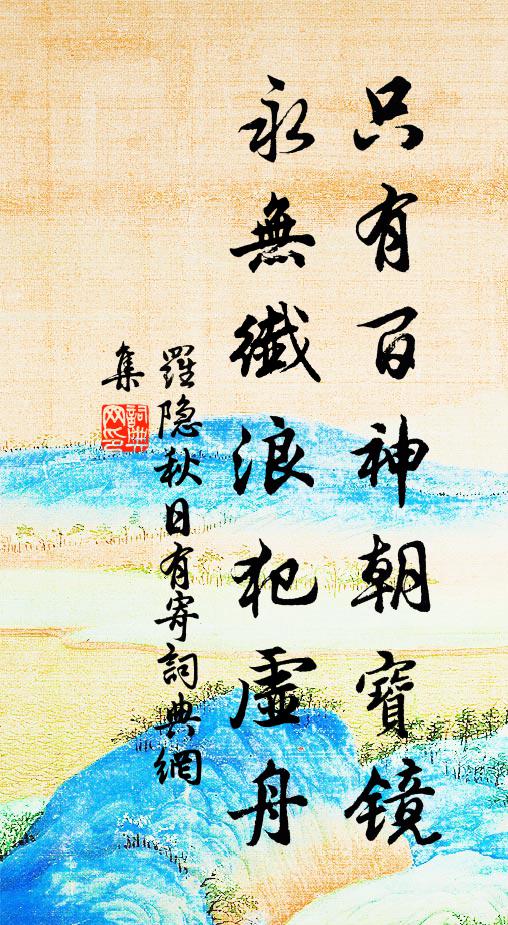 只有百神朝寶镜
永無纖浪犯虛舟
羅隐秋日有寄詞典網
集
詞典網印